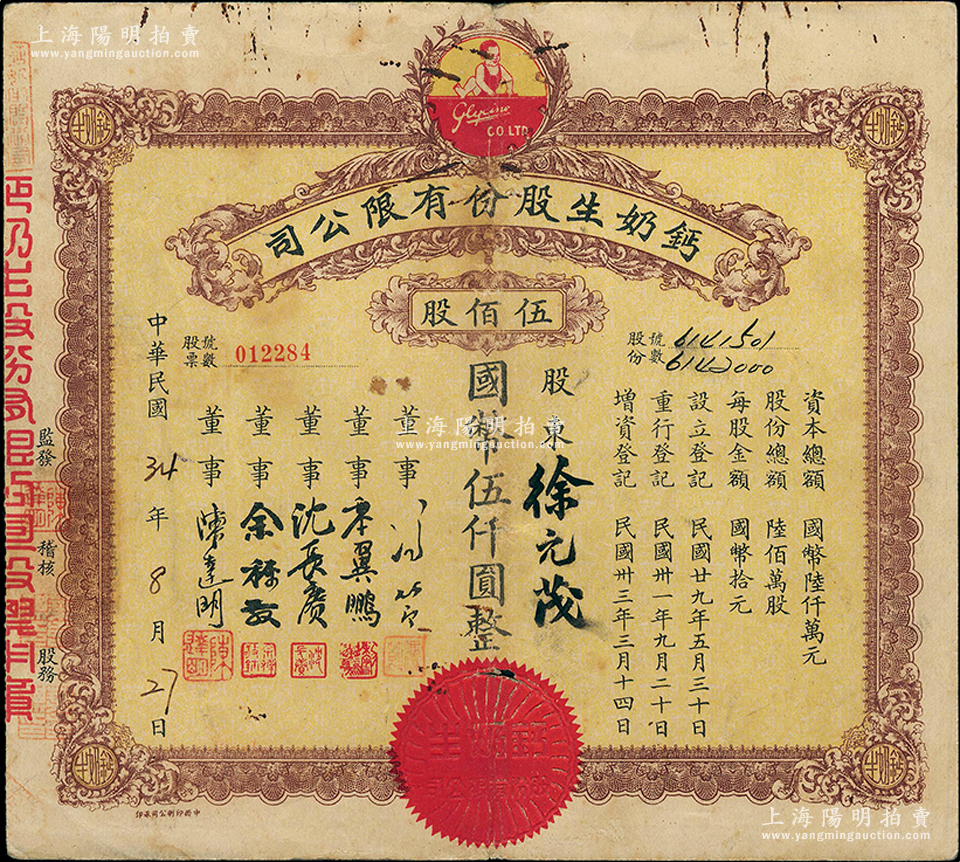 上海陽明拍賣
www.yangmingauction.com
CO LTD
鈣奶生股份有限公司
伍佰股
股份號數 6141501
6142000
股票號數 012284
資本總額 國幣陸仟萬元
股份總額 陸佰萬股
每股金額 國幣拾元
設立登記 民國廿九年五月三十日
重行登記 民國卅一年九月二十日
增資登記 民國卅三年三月十四日
股東 徐元茂
國幣伍仟圓整
董事
董事 翼鵬
董事 沈長賡
董事 余
董事 陳達明
中華民國34年8月27日
監發
稽核
股務
鈣奶生
股份有限公司
上海陽明拍賣
www.yangmingauction.com
上海陽明拍賣
www.yangmingauction.com